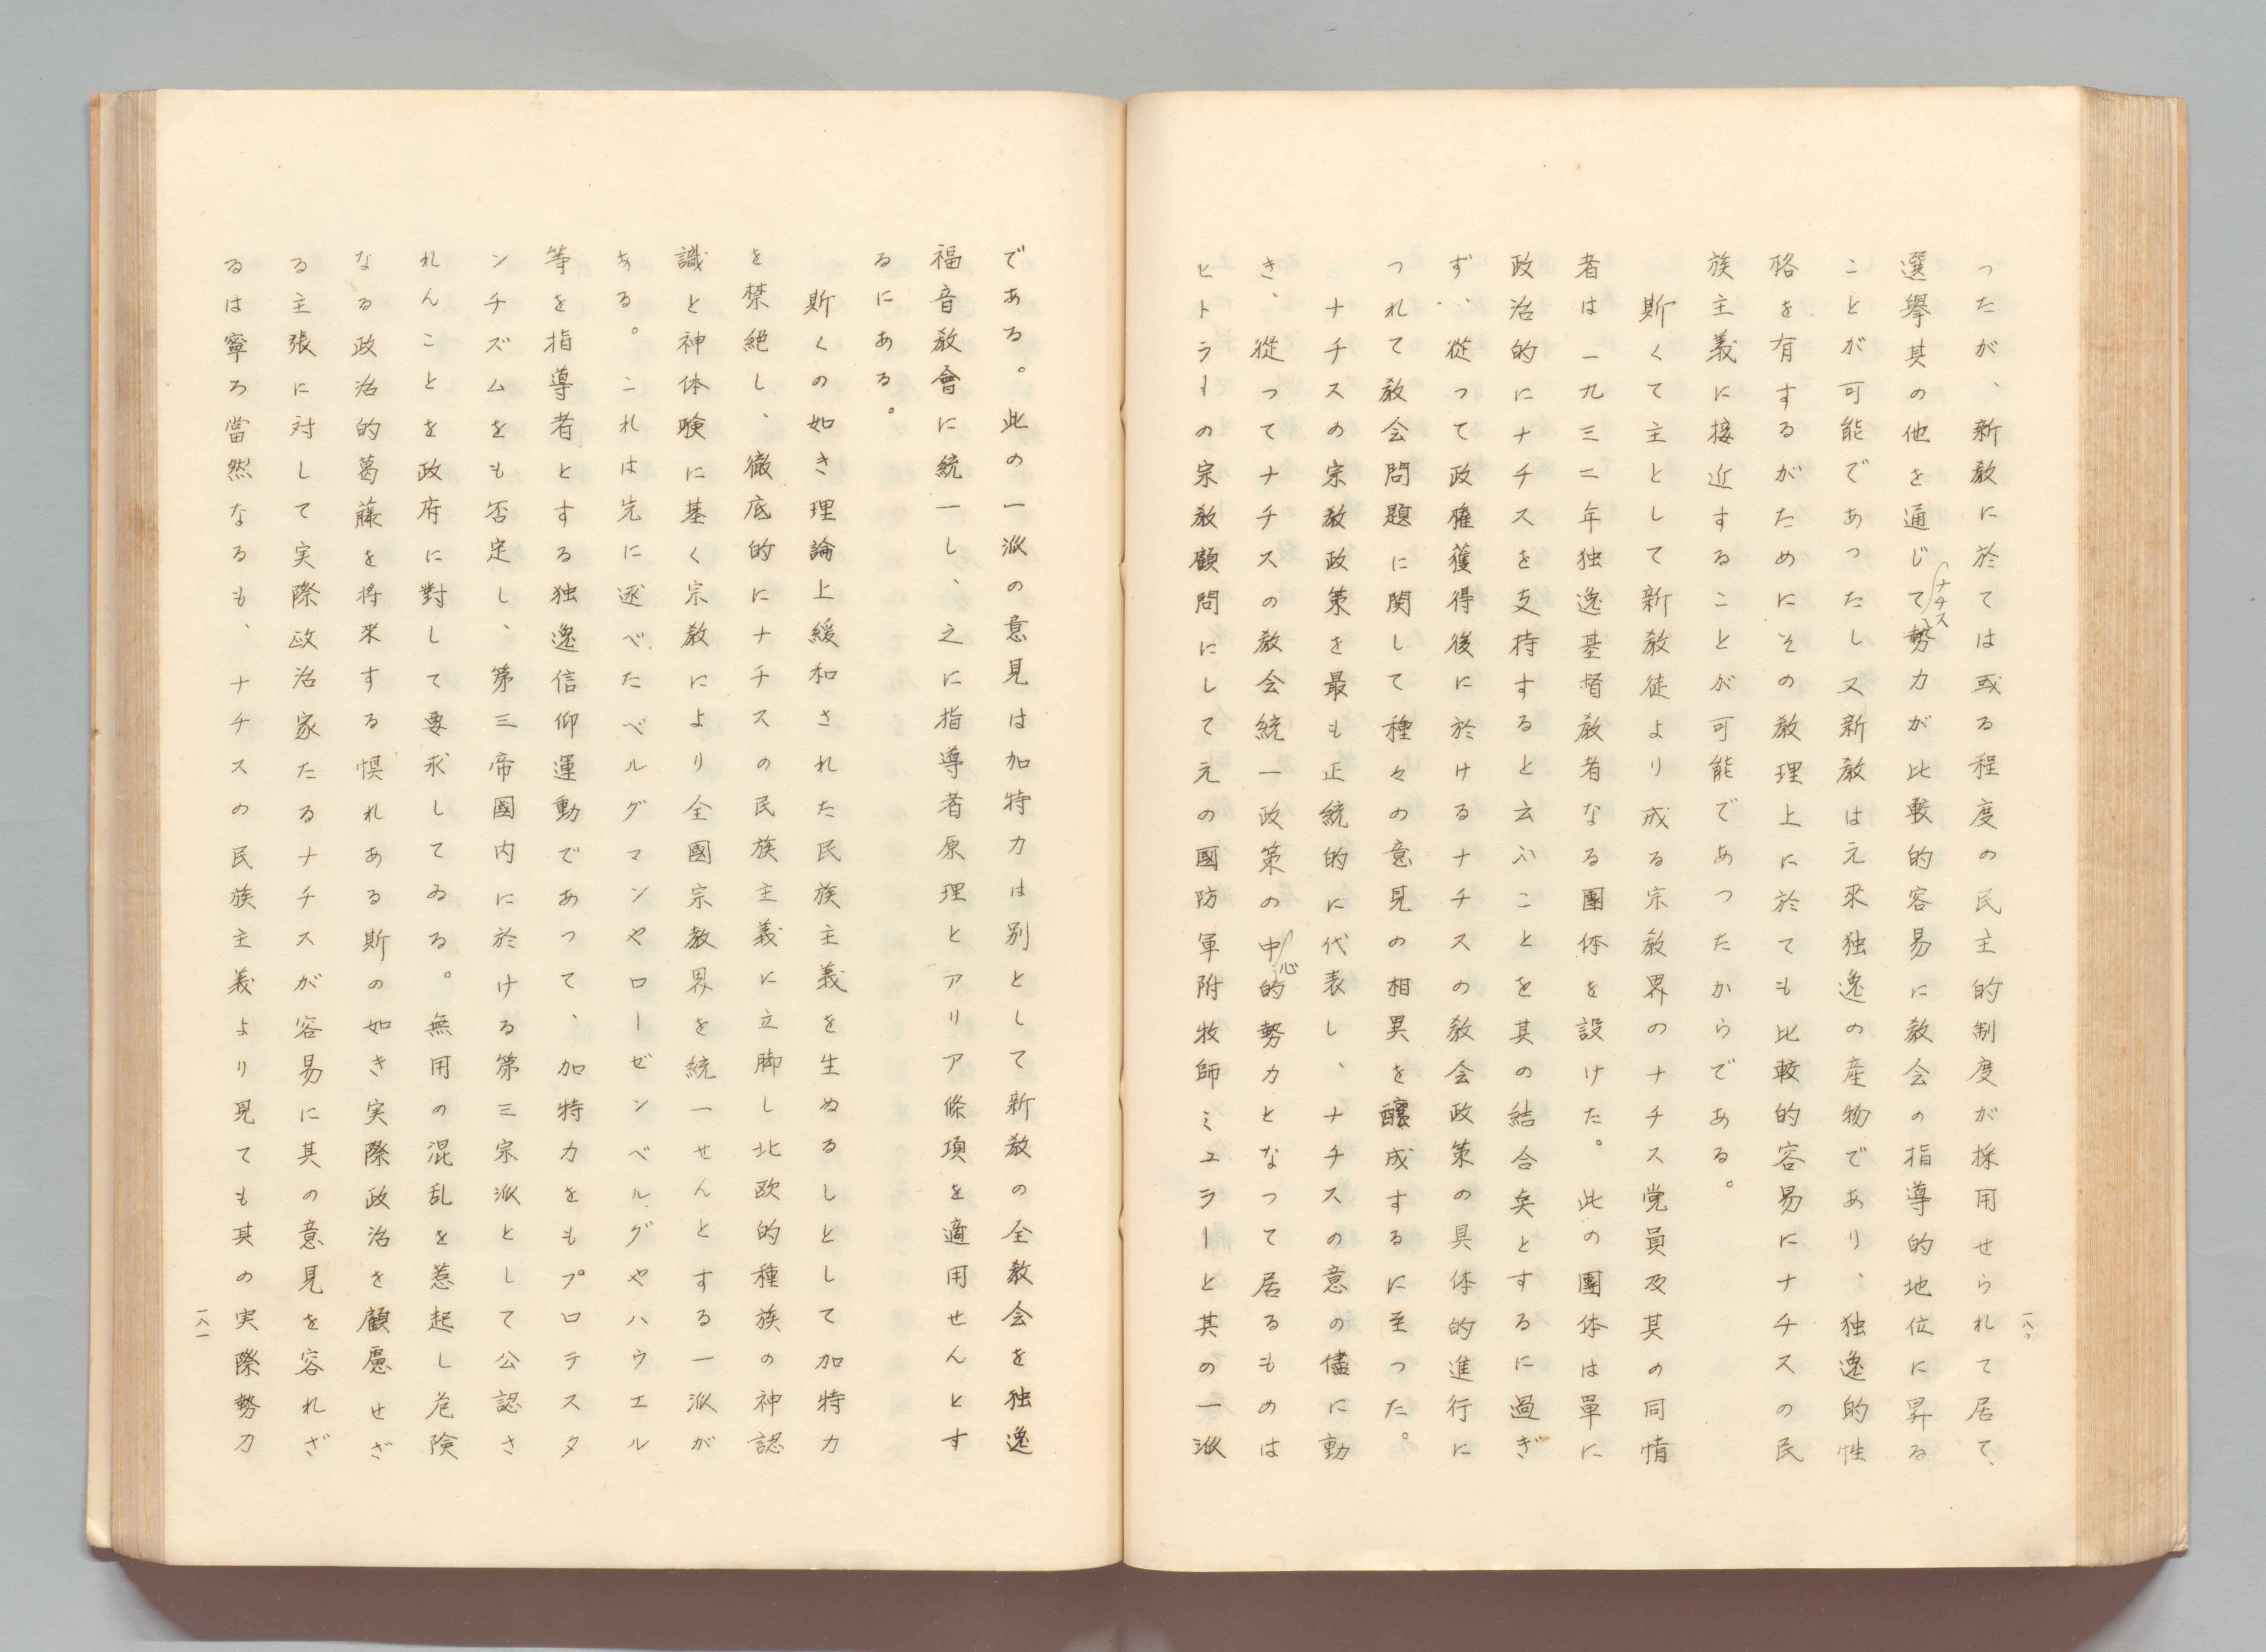 つたが、新教に於ては或る程度の民主的制度が採用せられて居て、
選擧其の他を通じてナチス勢力が比較的容易に教会の指導的地位に昇る
ことが可能であつたし又新教は元來独逸の産物であり、独逸的性
格を有するがためにその教理上に於ても比較的容易にナチスの民
族主義に接近することが可能であつたからである。
斯くて主として新教徒より成る宗教界のナチス党員及其の同情
者は一九三二年独逸基督教者なる團体を設けた。此の團体は單に
政治的にナチスを支持すると云ふことを其の結合矣とするに過ぎ
ず、從つて政権獲得後に於けるナチスの教会政策の具体的進行に
つれて教会問題に関して種々の意見の相異を釀成するに至つた。
ナチスの宗教政策を最も正統的に代表し、ナチスの意の儘に動
き、從つてナチスの教会統一政策の中心的勢力となつて居るものは
ヒトラーの宗教顧問にして元の國防軍附牧師ミユラーと其の一派
一八〇
である。此の一派の意見は加特力は別として新教の全教会を独逸
福音教會に統一し、之に指導者原理とアリア條項を適用せんとす
るにある。
斯くの如き理論上緩和された民族主義を生ぬるしとして加特力
を禁絶し、徹底的にナチスの民族主義に立脚し北欧的種族の神認
識と神体験に基く宗教により全國宗教界を統一せんとする一派が
ある。これは先に逐べたベルグマンやローゼンベルグやハウエル
等を指導者とする独逸信仰運動であつて、加特力をもプロテスタ
ンチズムをも否定し、第三帝國内に於ける第三宗派として公認さ
れんことを政府に對して要求してゐる。無用の混乱を惹起し危険
なる政治的葛藤を将来する惧れある斯の如き実際政治を顧慮せざ
る主張に対して実際政治家たるナチスが容易に其の意見を容れざ
るは寧ろ當然なるも、ナチスの民族主義より見ても其の実際勢力
一八一